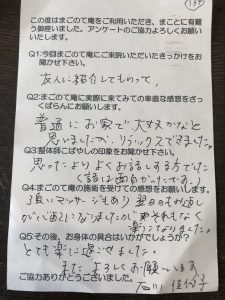 この度はまごのて庵をご利用いただき、まことに有難
う御座いました。アンケートのご協力よろしくお願い
いたします。
Q1:今回まごのて庵にご来院いただいたきっかけをお
聞かせ下さい。
友人に紹介してもらって、
Q2:まごのて庵に実際に来てみての率直な感想をざっ
くばらんにお願いします。
普通にお家で、大丈夫かなと
思いましたが リラックスできました。
Q3:整体師こばやしの印象をお聞かせ下さい。
思ったよりよくお話しする方でした
(話は面白かったです。)
Q4:まごのて庵の施術を受けての感想をお願いします。
強いマッサージもあり 翌日のもみ返し
が心配になりましたが それもなく
楽になりました。
Q5:その後、お身体の具合はいかがでしょうか?
とても楽に過ごせました。
また よろしくお願いします
ご協力ありがとうございました。
石川